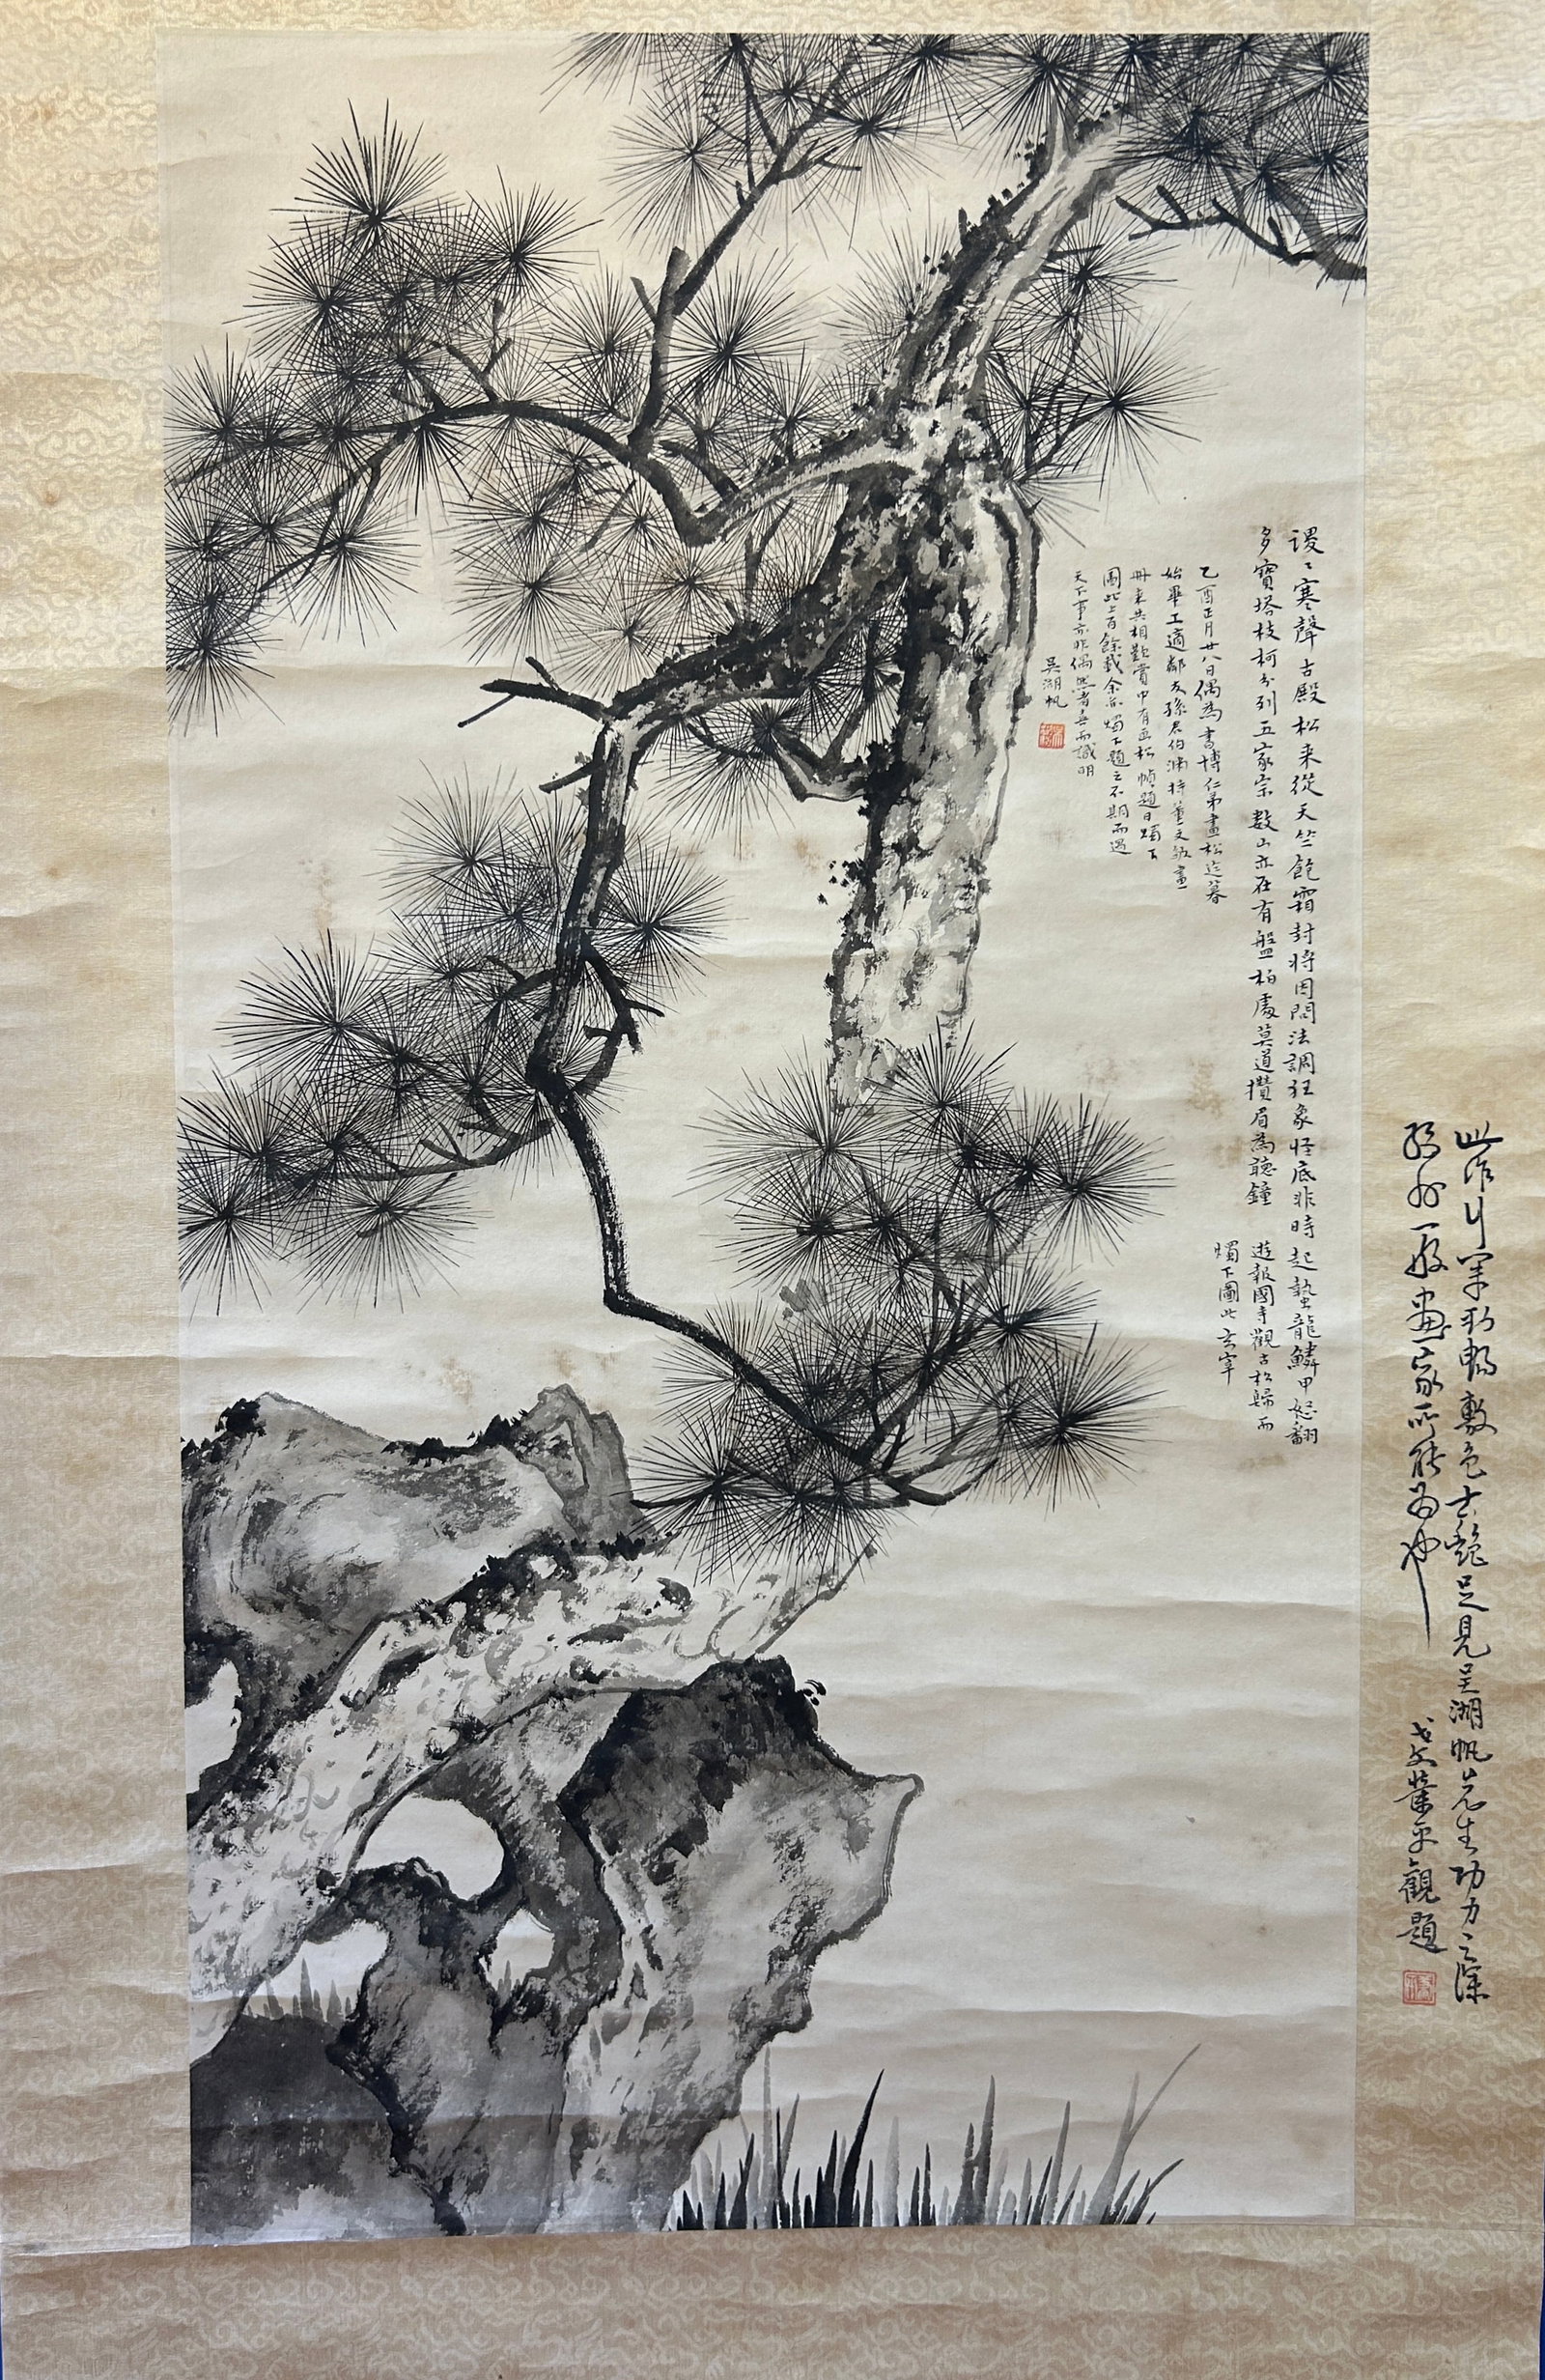 謖〻寒聲古殿松来從天竺飽霜封將因問法調狂象怪底非時起蟄龍鱗甲怒翻
多寶塔枝柯分列五家宗數山亦在有盤柏處莫道攢眉為聽鐘
遊報國寺觀古松歸而
燭下圖此玄宰
乙酉正月廿八日偶為書博仁弟畫松迄暮
始畢工適鄰友孫君伯淵持董文敏畫
冊来共相歡賞中有画松幀題曰燭下
圖此上百餘載余亦燭下題之不期而遇
天下事亦非偶然者矣而識明
吳湖帆
此作用筆敷色古艷足見吳湖帆先生功力之深
一般畫家所能為也
葉平觀題